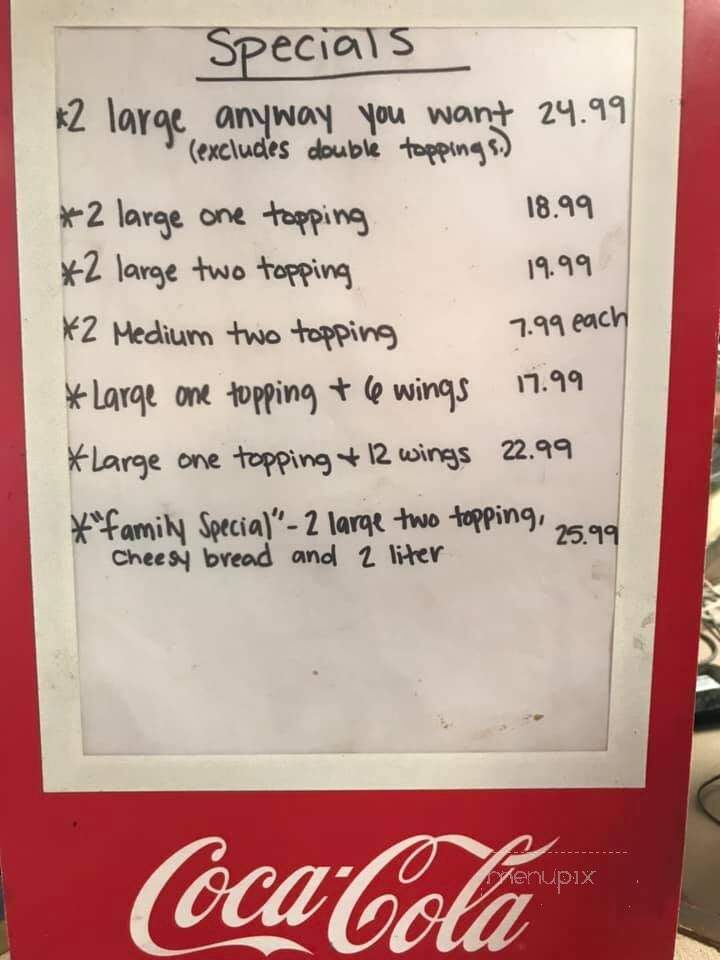 Specials
*2 large anyway you want 24.99
(excludes double toppings.)
*2 large one topping 18.99
*2 large two topping 19.99
*2 Medium two topping 7.99 each
*Large one topping + 6 wings 17.99
*Large one topping + 12 wings 22.99
*"family Special" - 2 large two topping, 25.99
cheesy bread and 2 liter
Coca-Cola
menupix